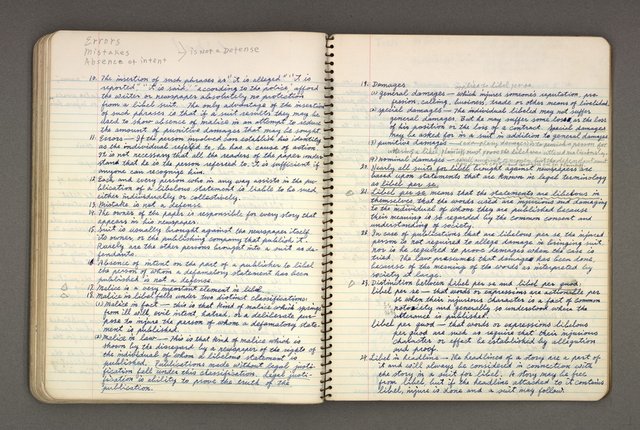 Errors
Mistakes
Absence of intent
is not a Defense
10. The insertion of such phrases as "it is alleged" "it is
reported" "it is said" "according to the police" afford
the writer or newspaper absolutely no protection
from a libel suit. The only advantage of the insertion
of such phrases is that if a suit results they may be
used to show absence of malice in an attempt to reduce
the amount of punitive damages that may be sought
11. Errors - If the person involved can establish his identity
as the individual referred to, he has a cause of action.
It is not necessary that all the readers of the paper under-
stand that he is the person referred to; it is sufficient if
anyone can recognize him.
12. Each and every person who in any way assists in the pu-
blication of a libelous statement is liable to be sued
either individually or collectively.
13. Mistake is not a defense.
14. The owner of the paper is responsible for every story that
appears in his newspaper.
15. Suit is usually brought against the newspaper itself
its owner, or the publishing company that publish it.
Rarely are the other persons brought into a suit as de-
fendants.
16. Absence of intent on the part of a publisher to libel
the person of whom a defamatory statement has been
published is no defense
17. Malice is a very important element in libel
18. Malice in libel falls under two distinct classifications:
(1) Malice in fact - this is that kind of malice which springs
from ill will evil intent, hatred, or a deliberate pur-
pose to injure the person of whom a defamatory state-
ment is published.
(2) Malice in Law - this is that kind of malice which is
shown by the disregard by a newspaper of the rights of
the individual of whom a libelous statement is
published. Publications made without legal justi-
fication fall under this classification. Legal justi-
fication is ability to prove the truth of the
publication.
19. Damages
(1) general damages - which injures someone's reputation, pro-
fession calling, business, trade or other means of livelihood.
(2) special damages - The individual libeled may not suffer
general damages. But he may suffer some loss, as the loss
of his position or the loss of a contract. Special damages
may be asked for in a suit in addition to general damages
(3) punitive damages -
(4) nominal damages -
20. Nearly all suits for libel brought against newspapers are
based upon statements that are known in legal terminology
as libel per se.
21. Libel per se means that the statements are libelous in
themselves that the words used are injurious and damaging
to the individual of whom they are published because
their meaning is so regarded by the common consent and
understanding of society.
22. In case of publications that are libelous per se the injured
person is not required to allege damage in bringing suit,
nor is he required to prove damages when the case is
tried. The law presumes that damages has been done,
because of the meaning of the words as interpreted by
society at large.
23. Distinction between libel per se and libel per quod.
Libel per se - that words or expressions are actionable per
se when their injurious character is a fact of common
notoriety and generally so understood where the
utterance is published.
Libel per quod - that words or expressions libelous
per quod are such as require that their injurious
character or effect be established by allegation
and proof.
24. Libel in headline - The headlines of a story are a part of
it and will always be considered in connection with
the story in a suit for libel. A story may be free
from libel but if the headline attached to it contains
libel, injury is done and a suit may follow.